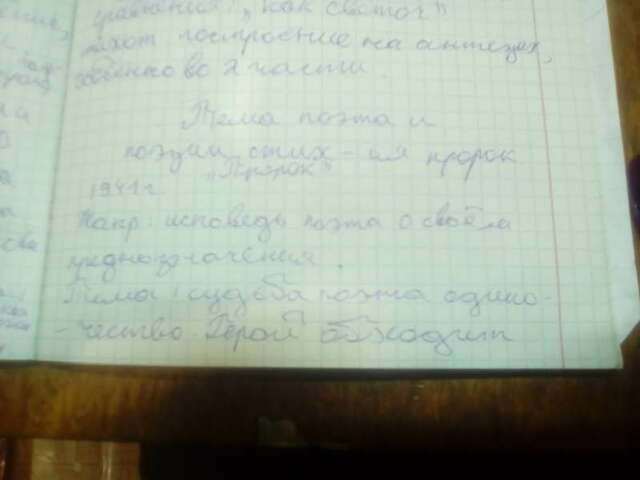 сравнения: „как светоч"
построение на антезах,
особенно во 2 части.
Тема поэта и
поэзии стих-ия пророк
„Пророк"
1941 г
Жанр: исповедь поэта о своём
предназначения.
Тема: судьба поэта одино-
-чество. Герой обходит